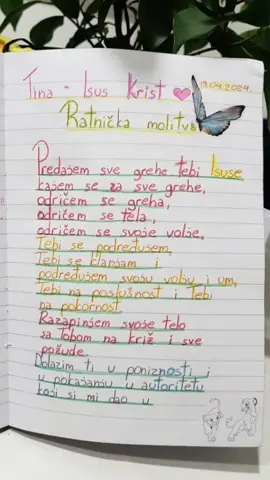 Tina - Isus Krist
19.04.2024.
Ratnička molitva
Predajem sve grehe tebi Isuse,
kajem se za sve grehe,
odričem se greha,
odričem se tela,
odričem se svoje volje,
Tebi se podređujem,
Tebi se klanjam i
podređujem svoju volju i um,
Tebi na poslušnost i Tebi
na pokornost.
Razapinjem svoje telo
sa Tobom na križ i sve
požude.
Dolazim ti u poniznosti i
u pokajanju u autoritetu
koji si mi dao u